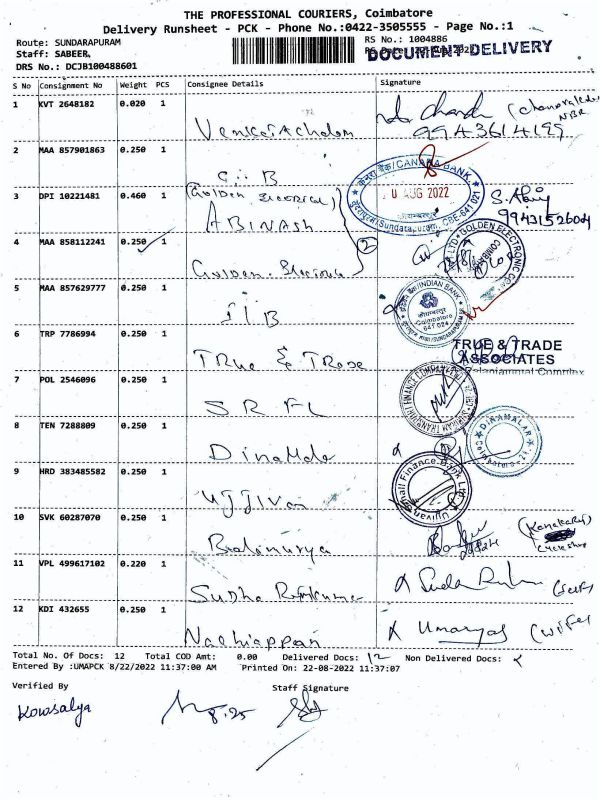 THE PROFESSIONAL COURIERS, Coimbatore
Delivery Runsheet - PCK - Phone No.:0422-3505555 - Page No.:1
Route: SUNDARAPURAM
RS No.: 1004886
Staff: SABEER.
DOCUMENT DELIVERY
DRS No.: DCJB100488601
S No Consignment No Weight PCS Consignee Details Signature
1 KVT 2648182 0.020 1 Venkatachalam
9943614199
2 MAA 857901863 0.250 1 CANARA BANK
AUG 2022
3 DPI 10221481 0.460 1 (Golden Electrical)
ABINASH
9943152604
4 MAA 858112241 0.250 1 Golden
2
GOLDEN ELECTRONIC
5 MAA 857629777 0.250 1 IIB
INDIAN BANK
Coimbatore
641 024
6 TRP 7786994 0.250 1 True & Trade
TRUE & TRADE
ASSOCIATES
Palaniammal Complex
7 POL 2546096 0.250 1 SRFL
8 TEN 7288809 0.250 1 Dinamala
DINAMALAR
9 HRD 383485582 0.250 1 Ujjivan
Ujjivan Small Finance Bank Ltd
10 SVK 60287070 0.250 1 Balamurya
11 VPL 499617102 0.220 1 Sudha Ramkumar
12 KDI 432655 0.250 1 Nachiappan
(wife)
Total No. Of Docs: 12 Total COD Amt: 0.00 Delivered Docs: 12 Non Delivered Docs:
Entered By :UMAPCK 8/22/2022 11:37:00 AM Printed On: 22-08-2022 11:37:07
Verified By Staff Signature
Kowsalya
8.25